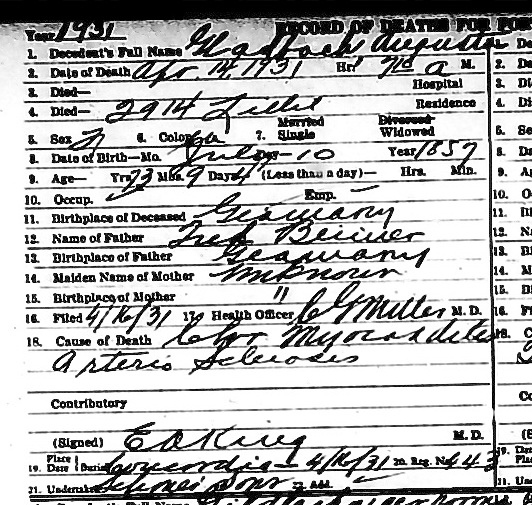 Year 1931 RECORD OF DEATHS FOR
1. Decedent's Full Name Augusta
2. Date of Death Apr 14, 1931 Hr. 7 15 a M.
3. Died— Hospital
4. Died— 2914 Residence
5. Sex F 6. Color 7. Married Single Divorced Widowed
8. Date of Birth—Mo. July Day—10 Year 1857
9. Age— Yrs. 73 Mos. 9 Days 4 (Less than a day)— Hrs. Min.
10. Occup. Emp. —
11. Birthplace of Deceased Germany
12. Name of Father Fred
13. Birthplace of Father Germany
14. Maiden Name of Mother Unknown
15. Birthplace of Mother "
16. Filed 4/16/31 17. Health Officer C G Miller M. D.
18. Cause of Death Chr Myocarditis
Arterio Sclerosis
Contributory
(Signed) E O King M. D.
19. Place Date Burial Concordia — 4/16/31 20. Reg. No. 443
21. Undertaker Sons 22. Add.